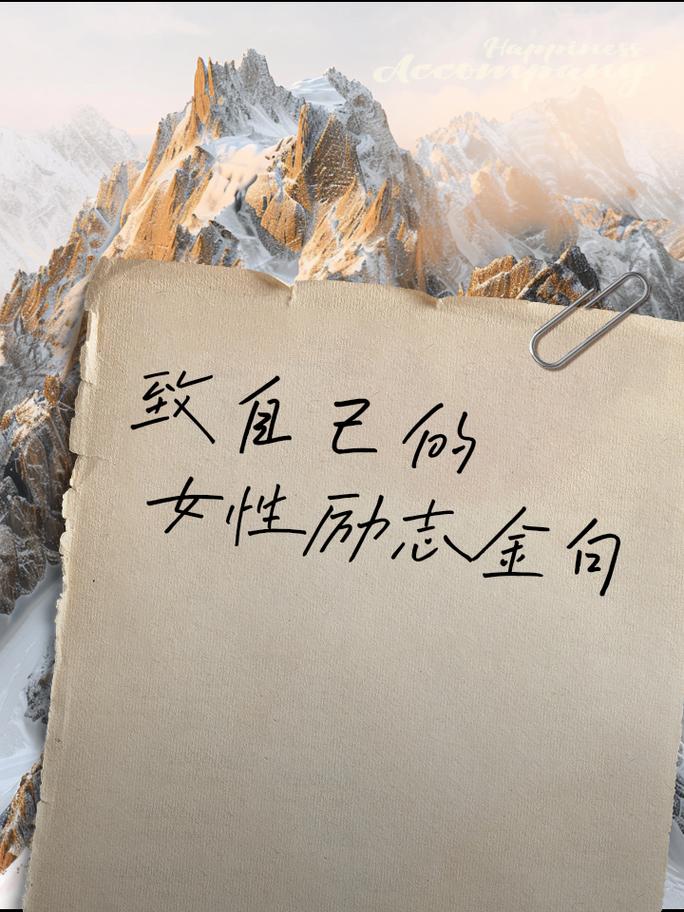 Happiness
Accompany
致自己的
女性励志金句